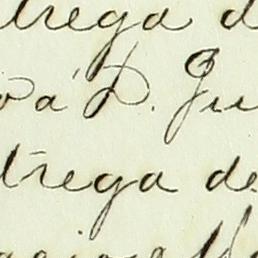 trega d
va á D. Ju
trega de